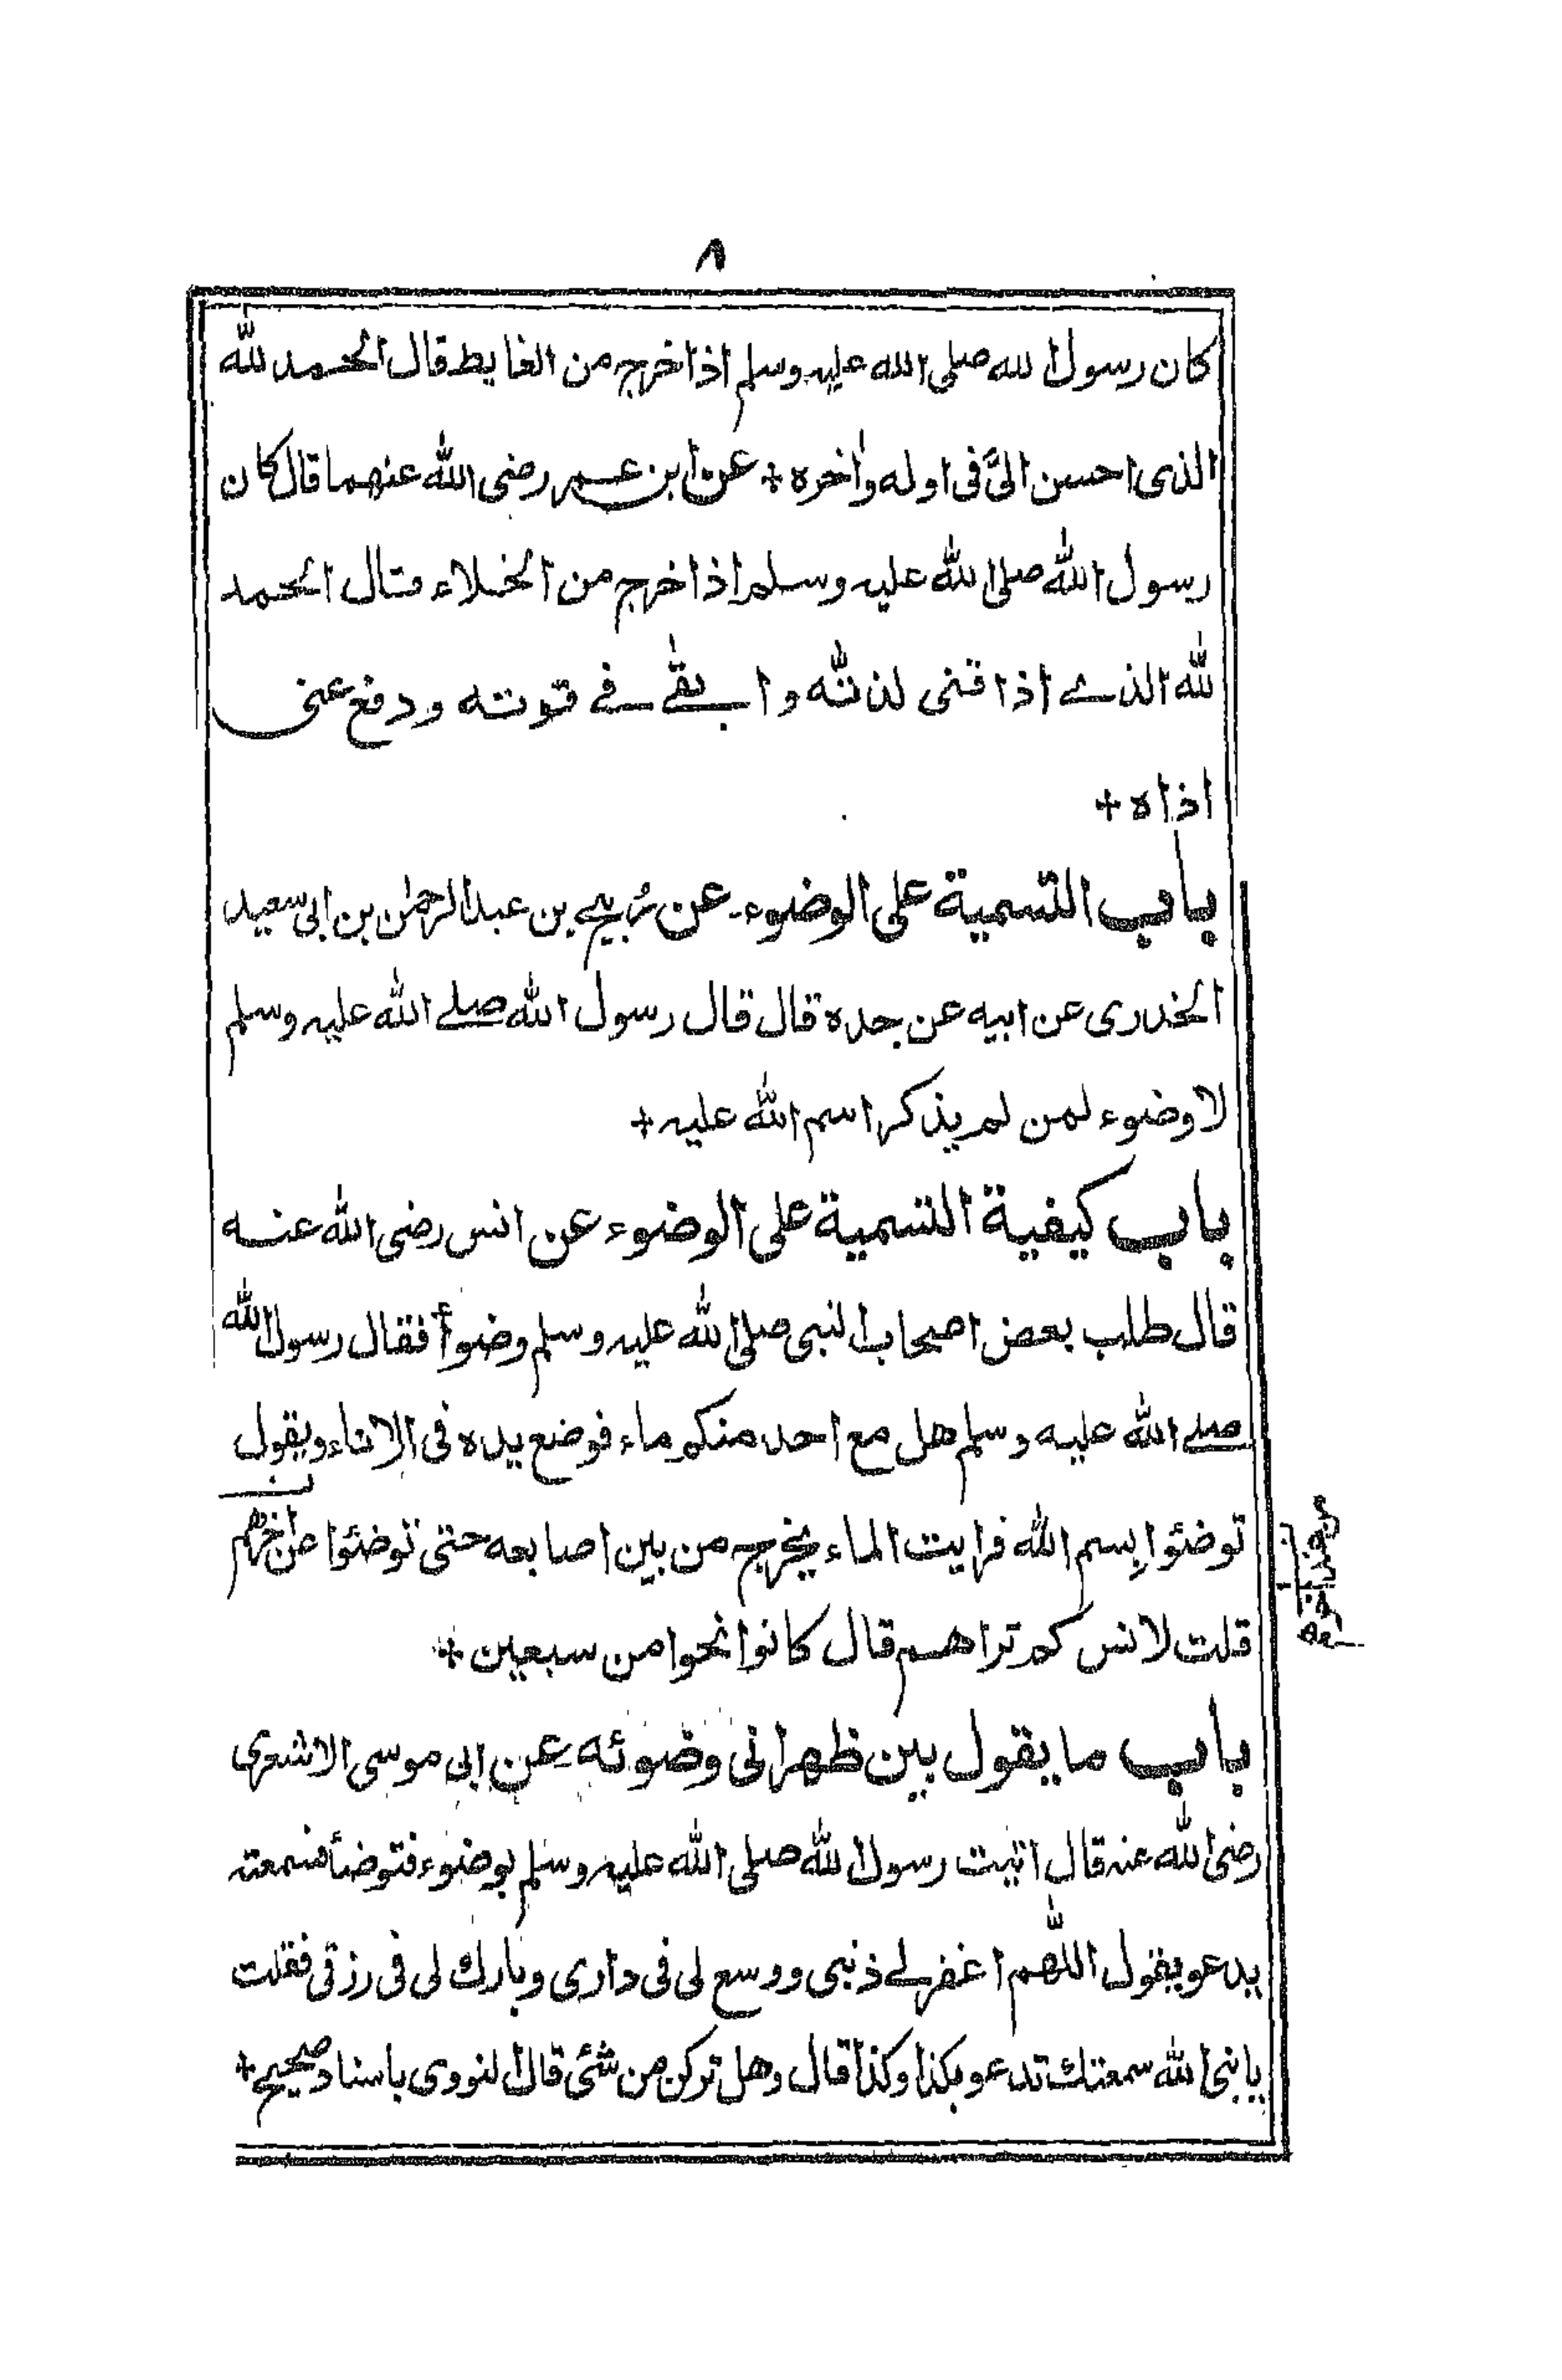 ٨
كان رسول الله صلى الله عليه وسلم اذا خرج من الغايط قال الحمد لله
الذى احسن الىَّ فى اوله واٰخره + عن ابن عمر رضى الله عنهما قال كان
رسول الله صلى الله عليه وسلم اذا خرج من الخلاء قال الحمد
لله الذے اذاقنى لذته وابقٰے فے قوته ودفع عنى
اذاه +
باب التسمية على الوضوء۔ عن رُبيح بن عبد الرحمٰن بن ابى سعيد
الخدرى عن ابيه عن جده قال قال رسول الله صلے الله عليه وسلم
لا وضوء لمن لم يذكر اسم الله عليه +
باب كيفية التسمية على الوضوء عن انس رضى الله عنه
قال طلب بعض اصحاب النبى صلى الله عليه وسلم وضوأً فقال رسول الله
صلے الله عليه وسلم هل مع احد منكم ماء فوضع يده فى الاناء ويقول
توضئوا بِسم الله فرايت الماء يخرج من بين اصابعه حتى توضئوا عن اٰخرهم
قلت لانس كم تراهم قال كانوا نحوا من سبعين +
باب ما يقول بين ظهرانى وضوئه عن ابى موسى الاشعرى
رضى الله عنه قال اتيت رسول الله صلى الله عليه وسلم بوضوء فتوضأ فسمعته
يدعو يقول اللّٰهم اغفر لے ذنبى ووسع لى فى دارى وبارك لى فى رزقى فقلت
يا نبى الله سمعتك تدعو بكذا وكذا قال وهل تركن من شئ قال النووى باسناد صحيح +